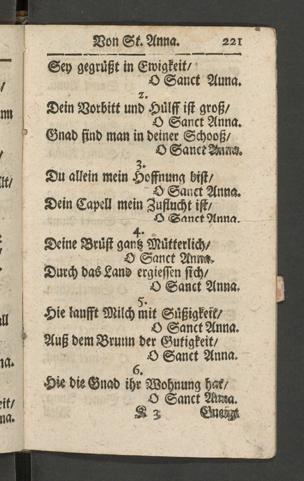 Von St. Anna. 221
Sey gegrüßt in Ewigkeit/
O Sanct Anna.
2.
Dein Vorbitt und Hülff ist groß/
O Sanct Anna.
Gnad find man in deiner Schooß/
O Sanct Anna.
3.
Du allein mein Hoffnung bist/
O Sanct Anna.
Dein Capell mein Zuflucht ist/
O Sanct Anna.
4.
Deine Brüst gantz Mütterlich/
O Sanct Anna.
Durch das Land ergiessen sich/
O Sanct Anna.
5.
Hie laufft Milch mit Süßigkeit/
O Sanct Anna.
Auß dem Brunn der Gutigkeit/
O Sanct Anna.
6.
Hie die Gnad ihr Wohnung hat/
O Sanct Anna.
K 3